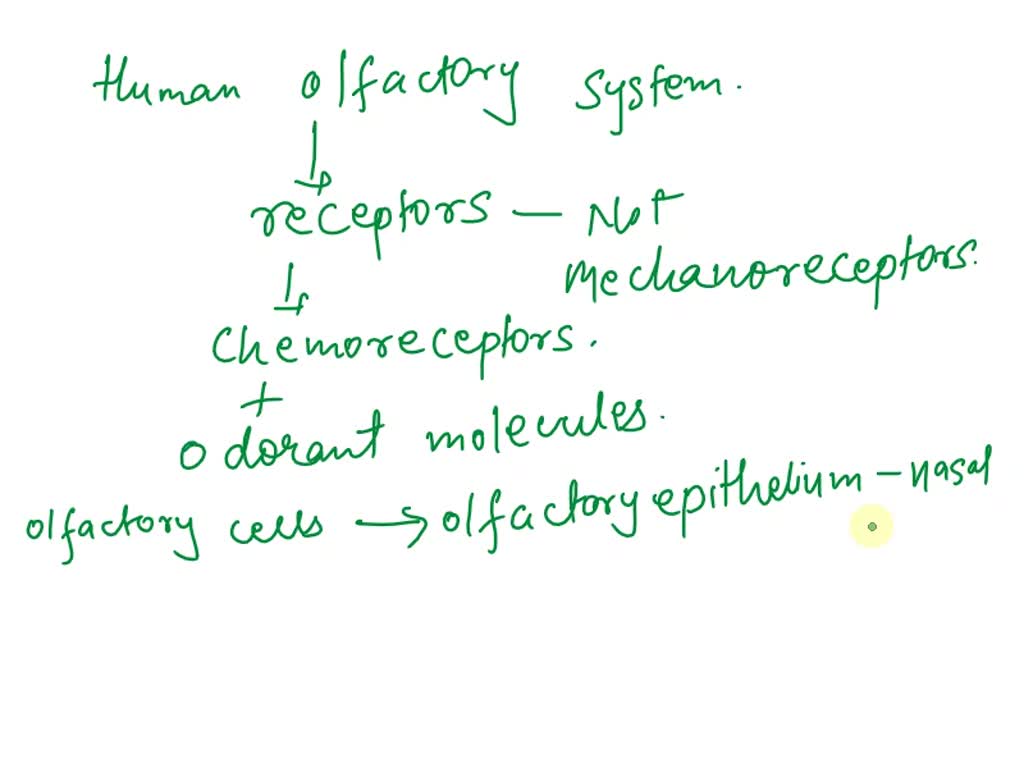 Human olfactory system.
receptors — Not
Mechanoreceptors.
Chemoreceptors.
+
Odorant molecules.
olfactory cells → olfactory epithelium - nasal